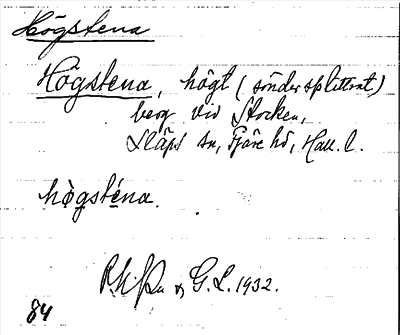 Högstena
Högstena, högt (sönder splittrat)
berg vid Stocken,
Släps sn, Fjäre hd, Hall. l.
hògsténa.
G. L. 1932.
84